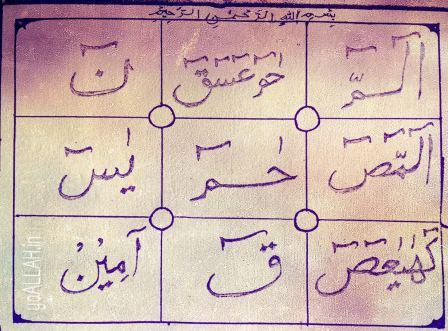 بِسْمِ اللهِ الرَّحْمٰنِ الرَّحِيْمِ
الٓـمّٓ حٰمٓعٓسٓقٓ نٓ
الٓمّٓصٓ حٰـمٓ يٰسٓ
كٓهٰيٰعٓصٓ قٓ آمِيْنُ
yoALLAHin